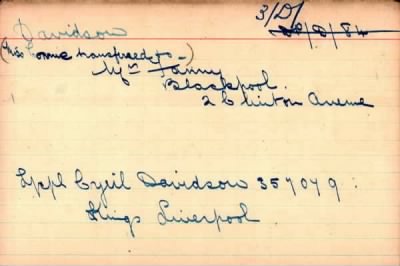 3/D/
Davidson
(Miss Connie transferred to -)
Mrs Fanny
Blackpool.
2 Clinton Avenue
L/Cpl Cyril Davidson 357079:
Kings Liverpool